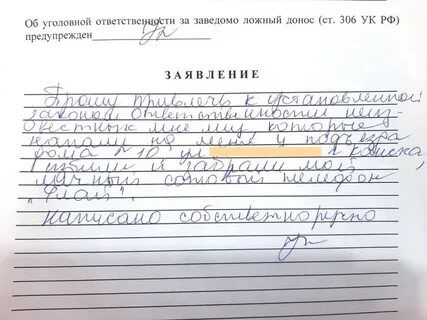 Об уголовной ответственности за заведомо ложный донос (ст. 306 УК РФ)
предупрежден
ЗАЯВЛЕНИЕ
Прошу привлечь к установленной
законом ответственности неиз-
вестных мне лиц которые
напали на меня у подъезда
дома №10 ул
и забрали мой
личный сотовый телефон
"Флай".
написано собственноручно